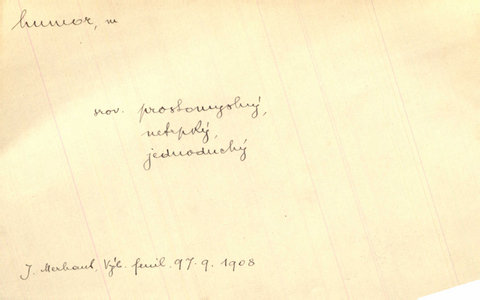 humor, m
srov. prostomyslný,
netrpký,
jednoduchý
J. Merhaut, Výb. feuil. 97. 9. 1908